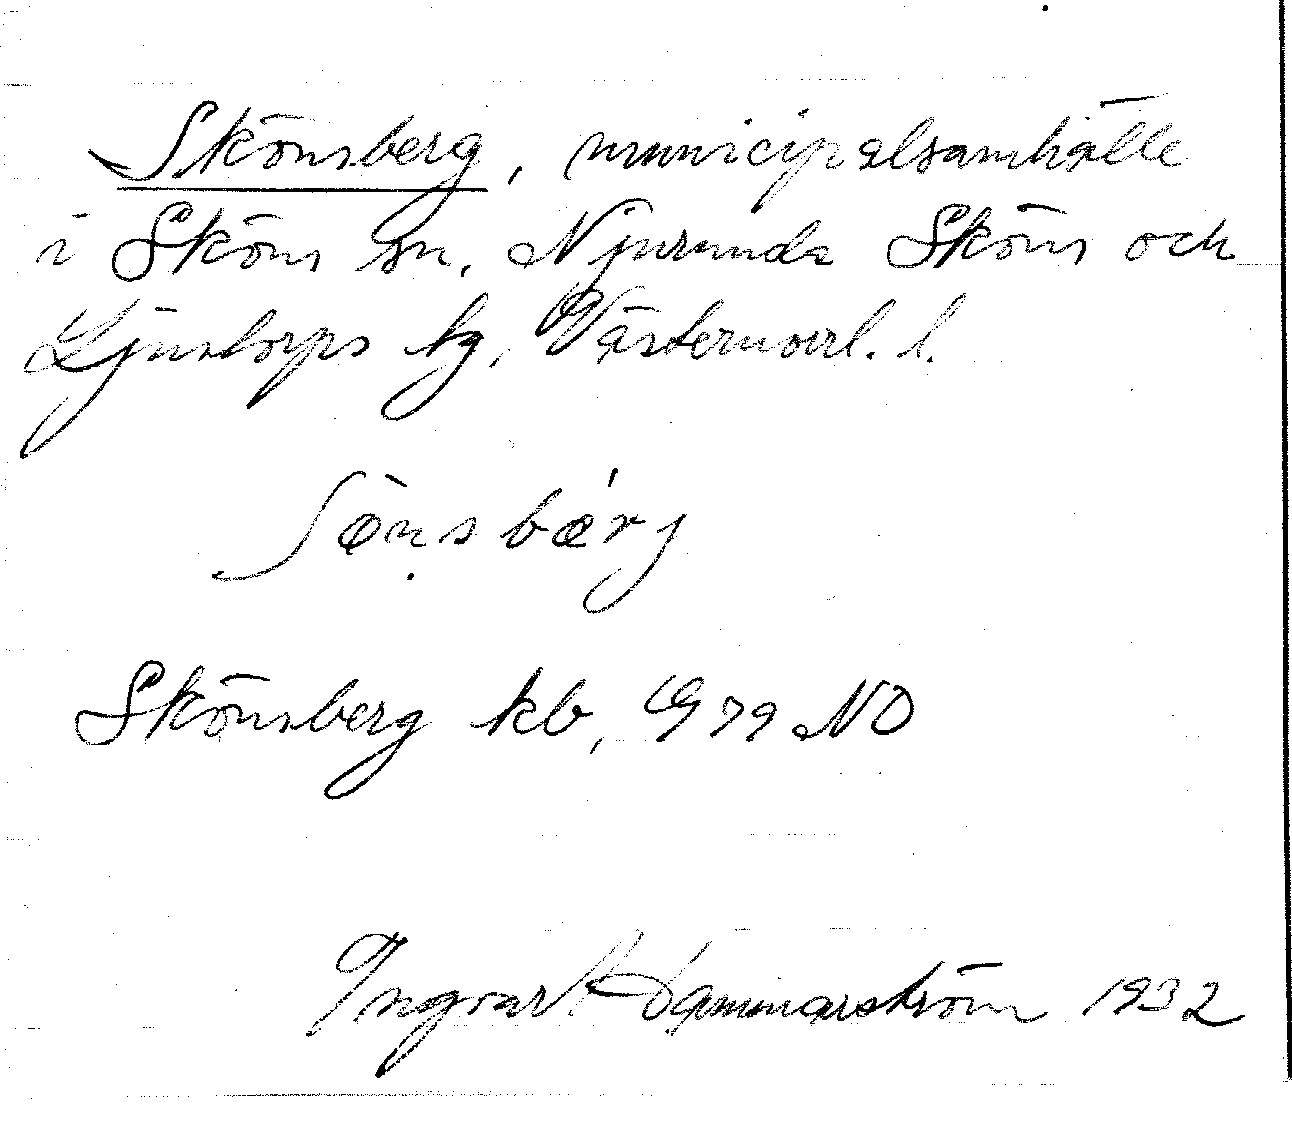 Skönsberg, municipalsamhälle
i Sköns sn, Njurunda Sköns och
Ljustorps tg, Västernorrl. l.
ʃœ̀nsbǽrj
Skönsberg kb, G 79 NO
Ingvar Hammarström 1932